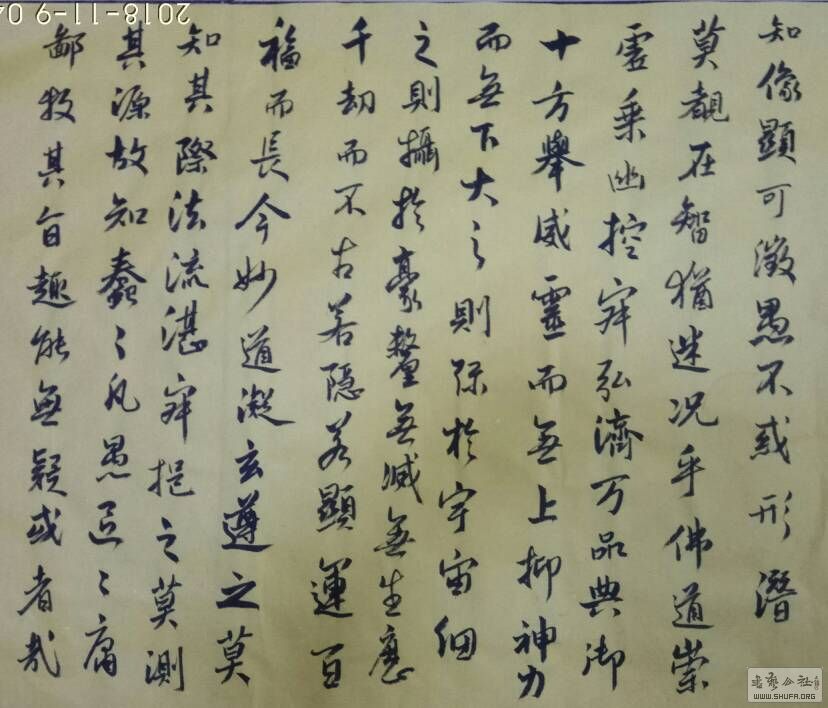 知像顯可徵愚不惑形潛
莫覩在智猶迷况乎佛道崇
虛乘幽控寂弘濟万品典御
十方舉威靈而無上抑神力
而無下大之則弥於宇宙細
之則攝於豪釐無滅無生歷
千劫而不古若隱若顯運百
福而長今妙道凝玄遵之莫
知其際法流湛寂挹之莫測
其源故知蠢〻凡愚區〻庸
鄙投其旨趣能無疑或者哉
2018-11-9 04
WWW.SHUFA.ORG